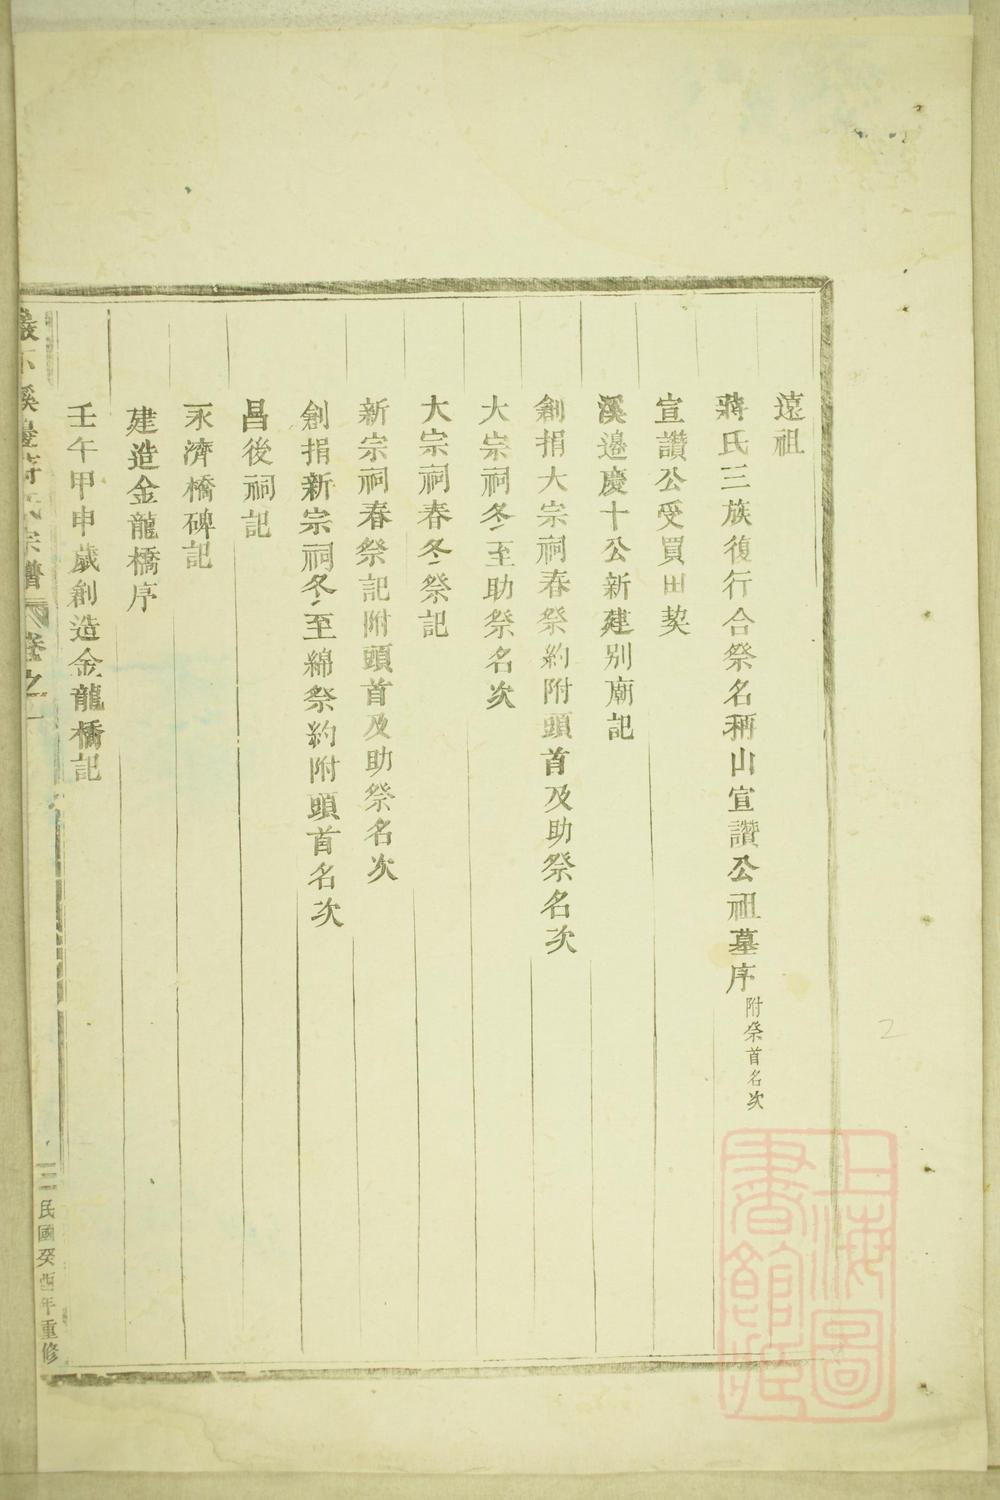 遠祖
蔣氏三族復行合祭名稱山宣讚公祖墓序附祭首名次
宣讚公受買田契
溪邊慶十公新建別廟記
創捐大宗祠春祭約附頭首及助祭名次
大宗祠冬至助祭名次
大宗祠春冬祭記
新宗祠春祭記附頭首及助祭名次
創捐新宗祠冬至綿祭約附頭首名次
昌後祠記
永濟橋碑記
建造金龍橋序
壬午甲申歲創造金龍橋記
溪邊蔣氏宗譜 卷之一
三 民國癸酉年重修
上海圖書館藏